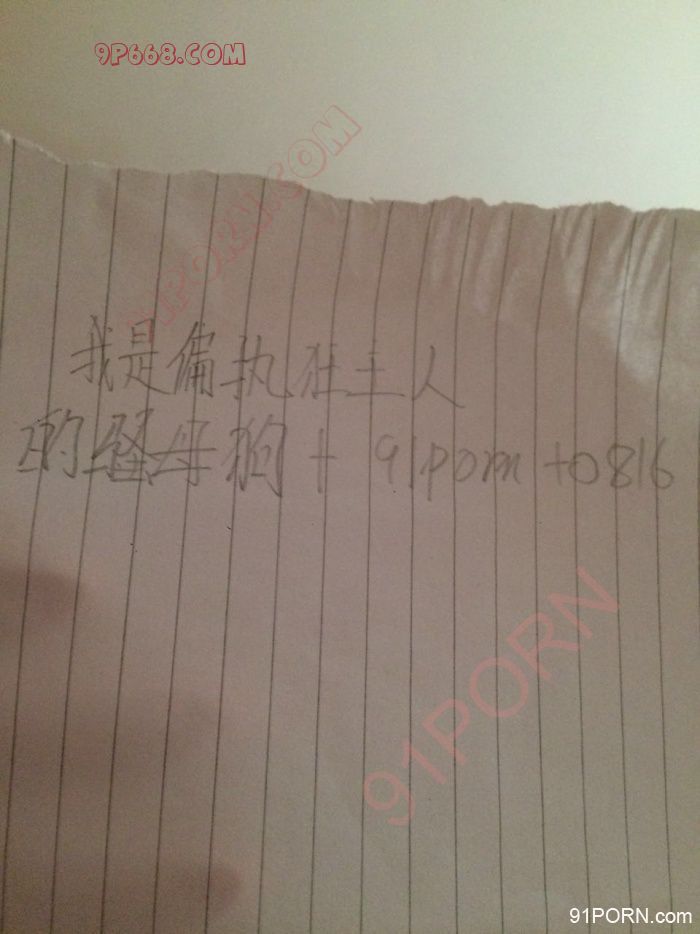 9P668.COM
91PORN.COM
我是偏执狂主人
的骚母狗+91porn+0816
91PORN
91PORN.COM